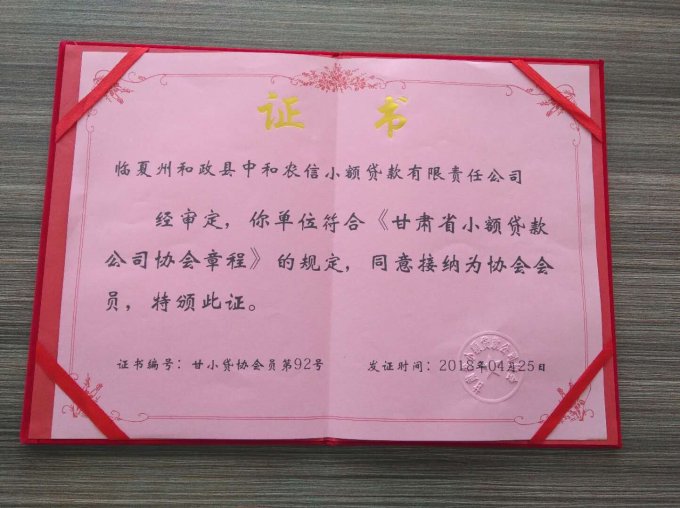 证 书
临夏州和政县中和农信小额贷款有限责任公司
经审定，你单位符合《甘肃省小额贷款
公司协会章程》的规定，同意接纳为协会会
员，特颁此证。
证书编号：甘小贷协会员第92号 发证时间：2018年04月25日